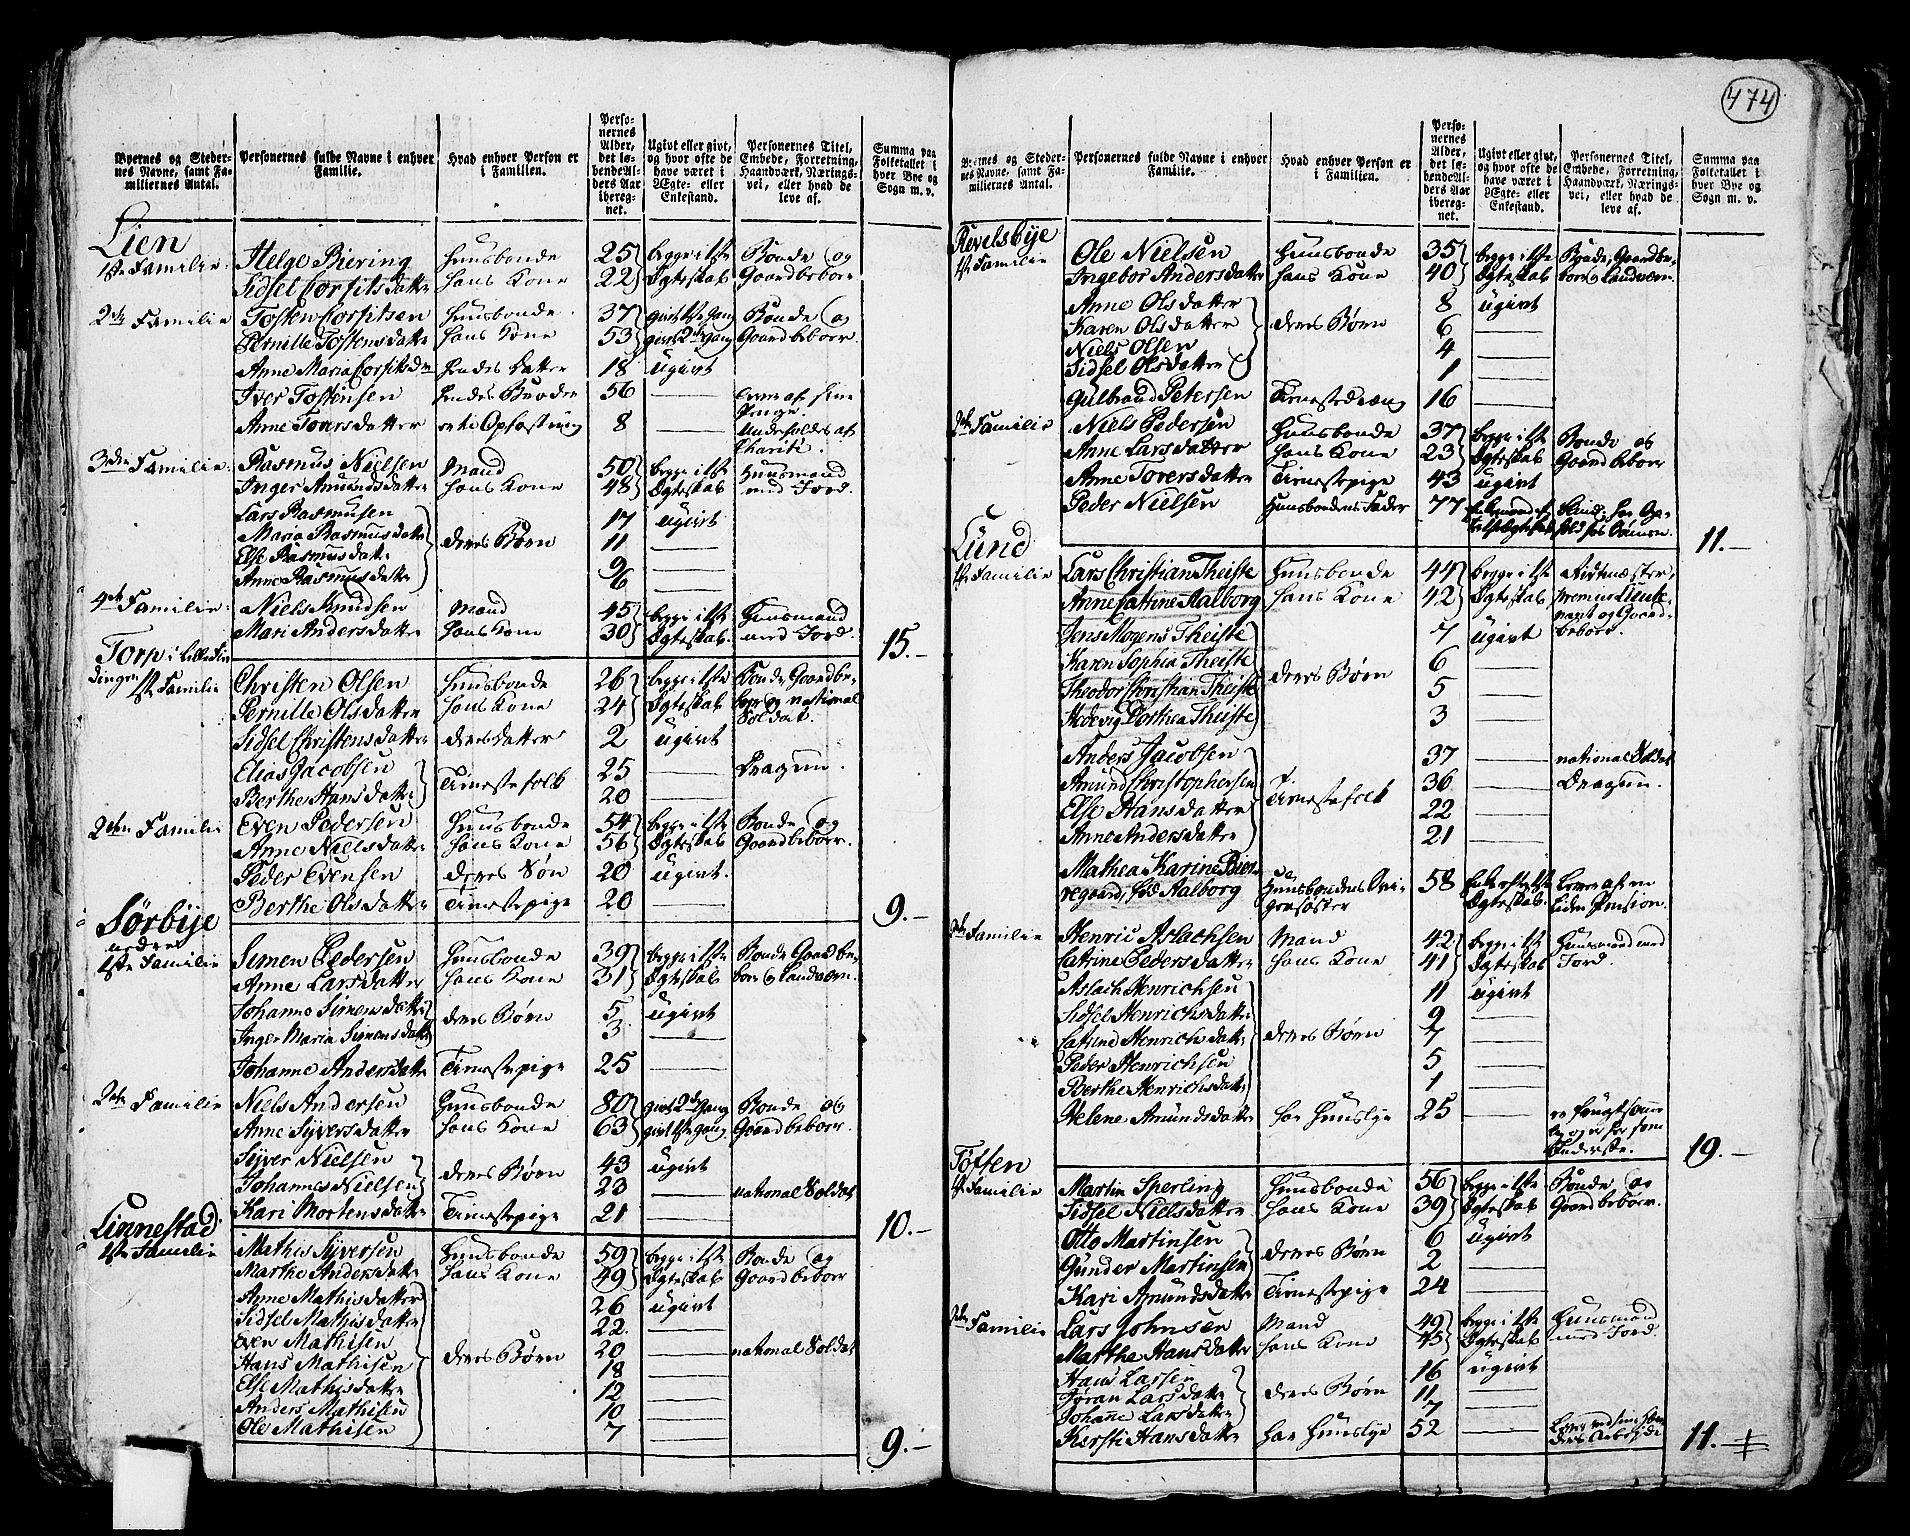 474
Byernes og Steder-
nes Navne, samt Fa-
miliernes Antal.
Personernes fulde Navne i enhver
Familie.
Hvad enhver Person er
i Familien.
Perso-
nernes
Alder,
det lø-
bende Al-
ders Aar
ibereg-
net.
Ugivt eller givt,
og hvor ofte de
have været i
Ægte- eller
Enkestand.
Personernes Titel,
Embede, Forretning,
Haandværk, Nærings-
vei, eller hvad de
leve af.
Summa paa
Folketallet i
hver Bye og
Sogn m. v.
Lien
1ste Familie Helge Biering Huusbonde 25 begge i 1ste Bonde og
Sidsel Corfitsdatter hans Kone 22 Ægteskab Gaardbeboer
2den Familie Tosten Corfitsen Huusbonde 37 givt 1ste Gang Bonde og
Pernille Tostensdatter hans Kone 53 givt 2den Gang Gaardbeboer
Anne Maria Corfitsd hendes Datter 18 ugivt
Iver Tostensen hendes Broder 56 lever af sine
Penge.
Anne Toversdatter et Opfostring 8 underholdes af
Charité
3die Familie Rasmus Nielsen Mand 50 begge i 1ste Huusmand
Inger Amundsdatter hans Kone 48 Ægteskab med Jord.
Lars Rasmusen 17 ugivt
Maria Rasmusdatter deres Børn 11
Else Rasmusdatter 9
Anne Rasmusdatter 6
4de Familie Niels Knudsen Mand 45 begge i 1ste Huusmand
Mari Andersdatter hans Kone 30 Ægteskab med Jord. 15.
Torp i Lille
dingen 1ste Familie Christen Olsen Huusbonde 26 begge i 1ste Bonde Gaardbe-
Pernille Olsdatter hans Kone 24 Ægteskab boer og national
Soldat.
Sidsel Christensdatter deres datter 2 ugivt
Elias Jacobsen Tienestefolk 25 Dragun.
Berthe Hansdatter 20
2den Familie Even Pedersen Huusbonde 54 begge i 1ste Bonde og
Anne Nielsdatter hans Kone 56 Ægteskab Gaardbeboer.
Peder Evensen deres Søn 20 ugivt.
Berthe Olsdatter Tienestepige 20 9.
Sørbye
nedre
1ste Familie Simen Pedersen Huusbonde 39 begge i 1ste Bonde Gaardbe-
Anne Larsdatter hans Kone 31 Ægteskab boer og Landværn.
Johanne Simensdatter deres Børn 5 ugivt
Inger Maria Simensdatter 3
Johanne Andersdatter Tienestepige 25
2den Familie Niels Andersen Huusbonde 80 givt 2d Gang Bonde og
Anne Syversdatter hans Kone 63 givt 1ste Gang Gaardbeboer.
Syver Nielsen deres Børn 43 ugivt
Johannes Nielsen 23 national Soldat
Kari Mortensdatter Tienestepige 21 10.
Linnestad
1ste Familie Mathis Syversen Huusbonde 59 begge i 1ste Bonde og
Marthe Andersdatter hans Kone 49 Ægteskab Gaardbeboer
Anne Mathisdatter 26 ugivt
Sidsel Mathisdatter 22
Even Mathisen 20 national Soldat
Hans Mathisen deres Børn 18
Else Mathisdatter 12
Anders Mathisen 10
Ole Mathisen 7 9.
Byernes og Steder-
nes Navne, samt Fa-
miliernes Antal.
Personernes fulde Navne i enhver
Familie.
Hvad enhver Person er
i Familien.
Perso-
nernes
Alder,
det lø-
bende Al-
ders Aar
ibereg-
net.
Ugivt eller givt,
og hvor ofte de
have været i
Ægte- eller
Enkestand.
Personernes Titel,
Embede, Forretning,
Haandværk, Nærings-
vei, eller hvad de
leve af.
Summa paa
Folketallet i
hver Bye og
Sogn m. v.
Revelsbye
1ste Familie Ole Nielsen Huusbonde 35 begge i 1ste Bonde, Gaardbe-
Ingebor Andersdatter hans Kone 40 Ægteskab boer og Landværn.
Anne Olsdatter 8 ugivt
Karen Olsdatter deres Børn 6
Niels Olsen 4
Sidsel Olsdatter 1
Gulbrand Petersen Tienestedreng 16
2den Familie Niels Pedersen Huusbonde 37 begge i 1ste Bonde og
Anne Larsdatter hans Kone 23 Ægteskab Gaardbeboer
Anne Toversdatter Tienestepige 43 ugivt
Peder Nielsen Huusbondens Fader 77 Enkemand af 11.
Lund
1ste Familie Lars Christian Theiste Huusbonde 44 begge i 1ste
Anne Cattrine Aalborg hans Kone 42 Ægteskab premier Lieute-
nant og Gaard-
beboer.
Jens Mogens Theiste 7 ugivt
Karen Sophia Theiste deres Børn 6
Theodor Christian Theiste 5
Hedevig Dorthea Theiste 3
Anders Jacobsen 37 national Soldat
Amund Christophersen Tienestefolk 36 Dragun.
Else Hansdatter 22
Anne Andersdatter 21
Mathea Karine Bier-
regaard, fød Aalborg Huusbondens Svi-
gersøster 58 Enke efter 1ste
Ægteskab. Lever af en
liden Pension.
2den Familie Henric Aslachsen Mand 42 begge i 1ste Huusmand med
Catrine Pedersdatter hans Kone 41 Ægteskab Jord.
Aslach Henrichsen 11 ugivt
Sidsel Henrichsdatter 9
Catrine Henrichsdatter deres Børn 7
Peder Henrichsen 5
Berthe Henrichsdatter 1
Helene Amundsdatter har Huuslye 25 19.
Toften
1ste Familie Martin Sperling Huusbonde 56 begge i 1ste Bonde og
Sidsel Nielsdatter hans Kone 39 Ægteskab Gaardbeboer.
Otto Martinsen deres Børn 6 ugivt
Gunder Martinsen 2
Kari Amundsdatter Tienestepige 24
2den Familie Lars Johnsen Mand 49 begge i 1ste Huusmand
Marthe Hansdatter hans Kone 45 Ægteskab med Jord.
Hans Larsen 16 ugivt
Jøran Larsdatter deres Børn 11
Johanne Larsdatter 7
Kersti Hansdatter har Huuslye 52 Lever ved sine Hæn-
ders Arbejde 11.